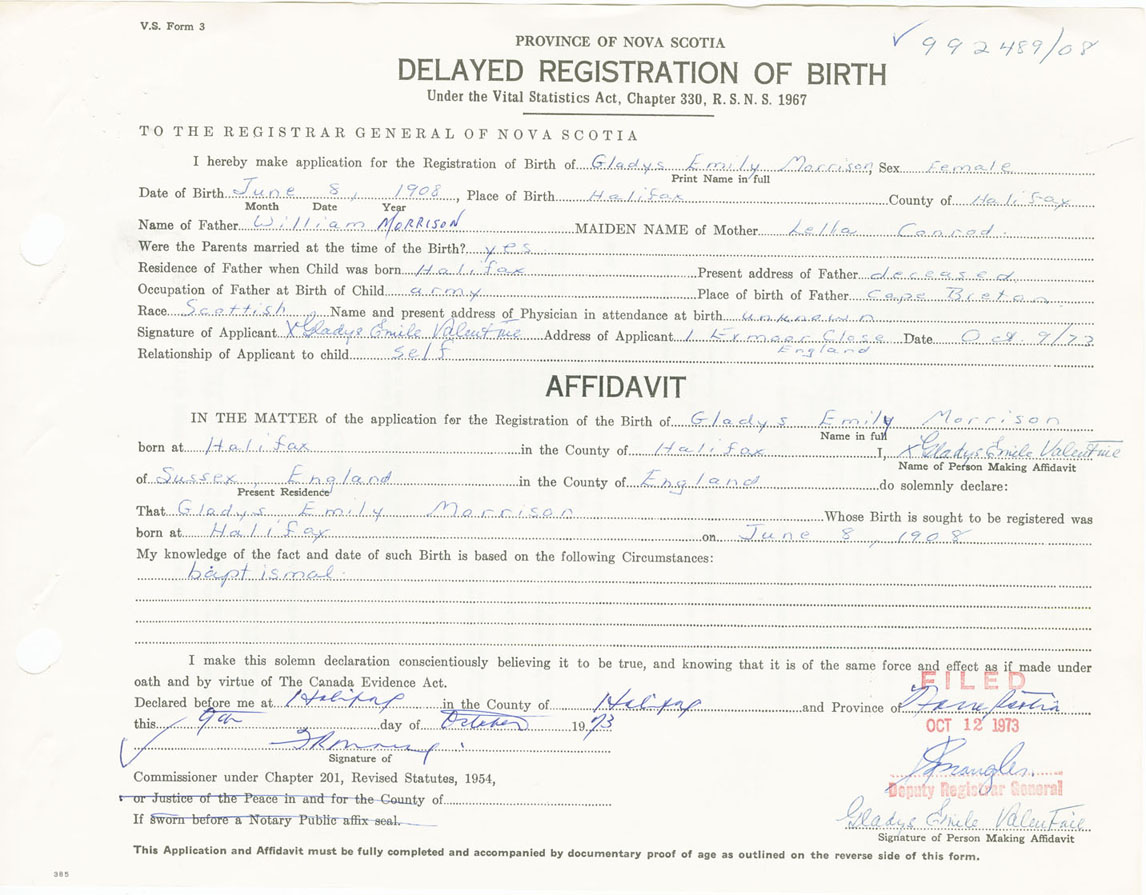 V.S. Form 3
992489/08
PROVINCE OF NOVA SCOTIA
DELAYED REGISTRATION OF BIRTH
Under the Vital Statistics Act, Chapter 330, R. S. N. S. 1967
TO THE REGISTRAR GENERAL OF NOVA SCOTIA
I hereby make application for the Registration of Birth of Gladys Emily Morrison, Sex Female
Print Name in full
Date of Birth June 8, 1908, Place of Birth Halifax County of Halifax
Month Date Year
Name of Father William MORRISON MAIDEN NAME of Mother Lella Conrod
Were the Parents married at the time of the Birth? yes
Residence of Father when Child was born Halifax Present address of Father deceased
Occupation of Father at Birth of Child army Place of birth of Father Cape Breton
Race Scottish, Name and present address of Physician in attendance at birth unknown
Signature of Applicant X Gladys Emile Valentine Address of Applicant 1 Ermoor Close Date Oct. 9/73
England
Relationship of Applicant to child self
AFFIDAVIT
IN THE MATTER of the application for the Registration of the Birth of Gladys Emily Morrison
Name in full
born at Halifax in the County of Halifax I, X Gladys Emile Valentine
Name of Person Making Affidavit
of Sussex, England in the County of England do solemnly declare:
Present Residence
That Gladys Emily Morrison Whose Birth is sought to be registered was
born at Halifax on June 8, 1908
My knowledge of the fact and date of such Birth is based on the following Circumstances:
baptismal.
I make this solemn declaration conscientiously believing it to be true, and knowing that it is of the same force and effect as if made under
oath and by virtue of The Canada Evidence Act.
FILED
Declared before me at Halifax in the County of Halifax and Province of Nova Scotia
this 9th day of October 1973
OCT 12 1973
Signature of
Commissioner under Chapter 201, Revised Statutes, 1954,
Deputy Registrar General
or Justice of the Peace in and for the County of
Gladys Emile Valentine
If sworn before a Notary Public affix seal.
Signature of Person Making Affidavit
This Application and Affidavit must be fully completed and accompanied by documentary proof of age as outlined on the reverse side of this form.
385